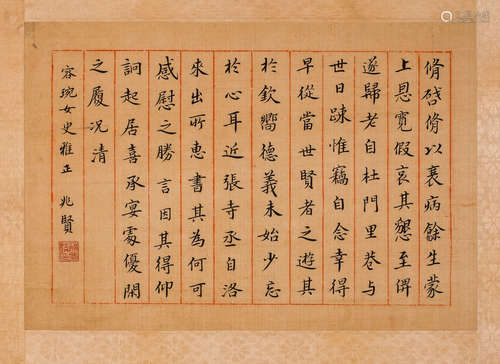 脩啓脩以衰病餘生蒙
上恩寬假哀其懇至俾
遂歸老自杜門里巷与
世日踈惟竊自念幸得
早從當世賢者之遊其
於欽嚮德義未始少忘
於心耳近張寺丞自洛
來出所惠書其為何可
感慰之勝言因其得仰
詗起居喜承宴處優閑
之履况清
容琬女史雅正 兆賢